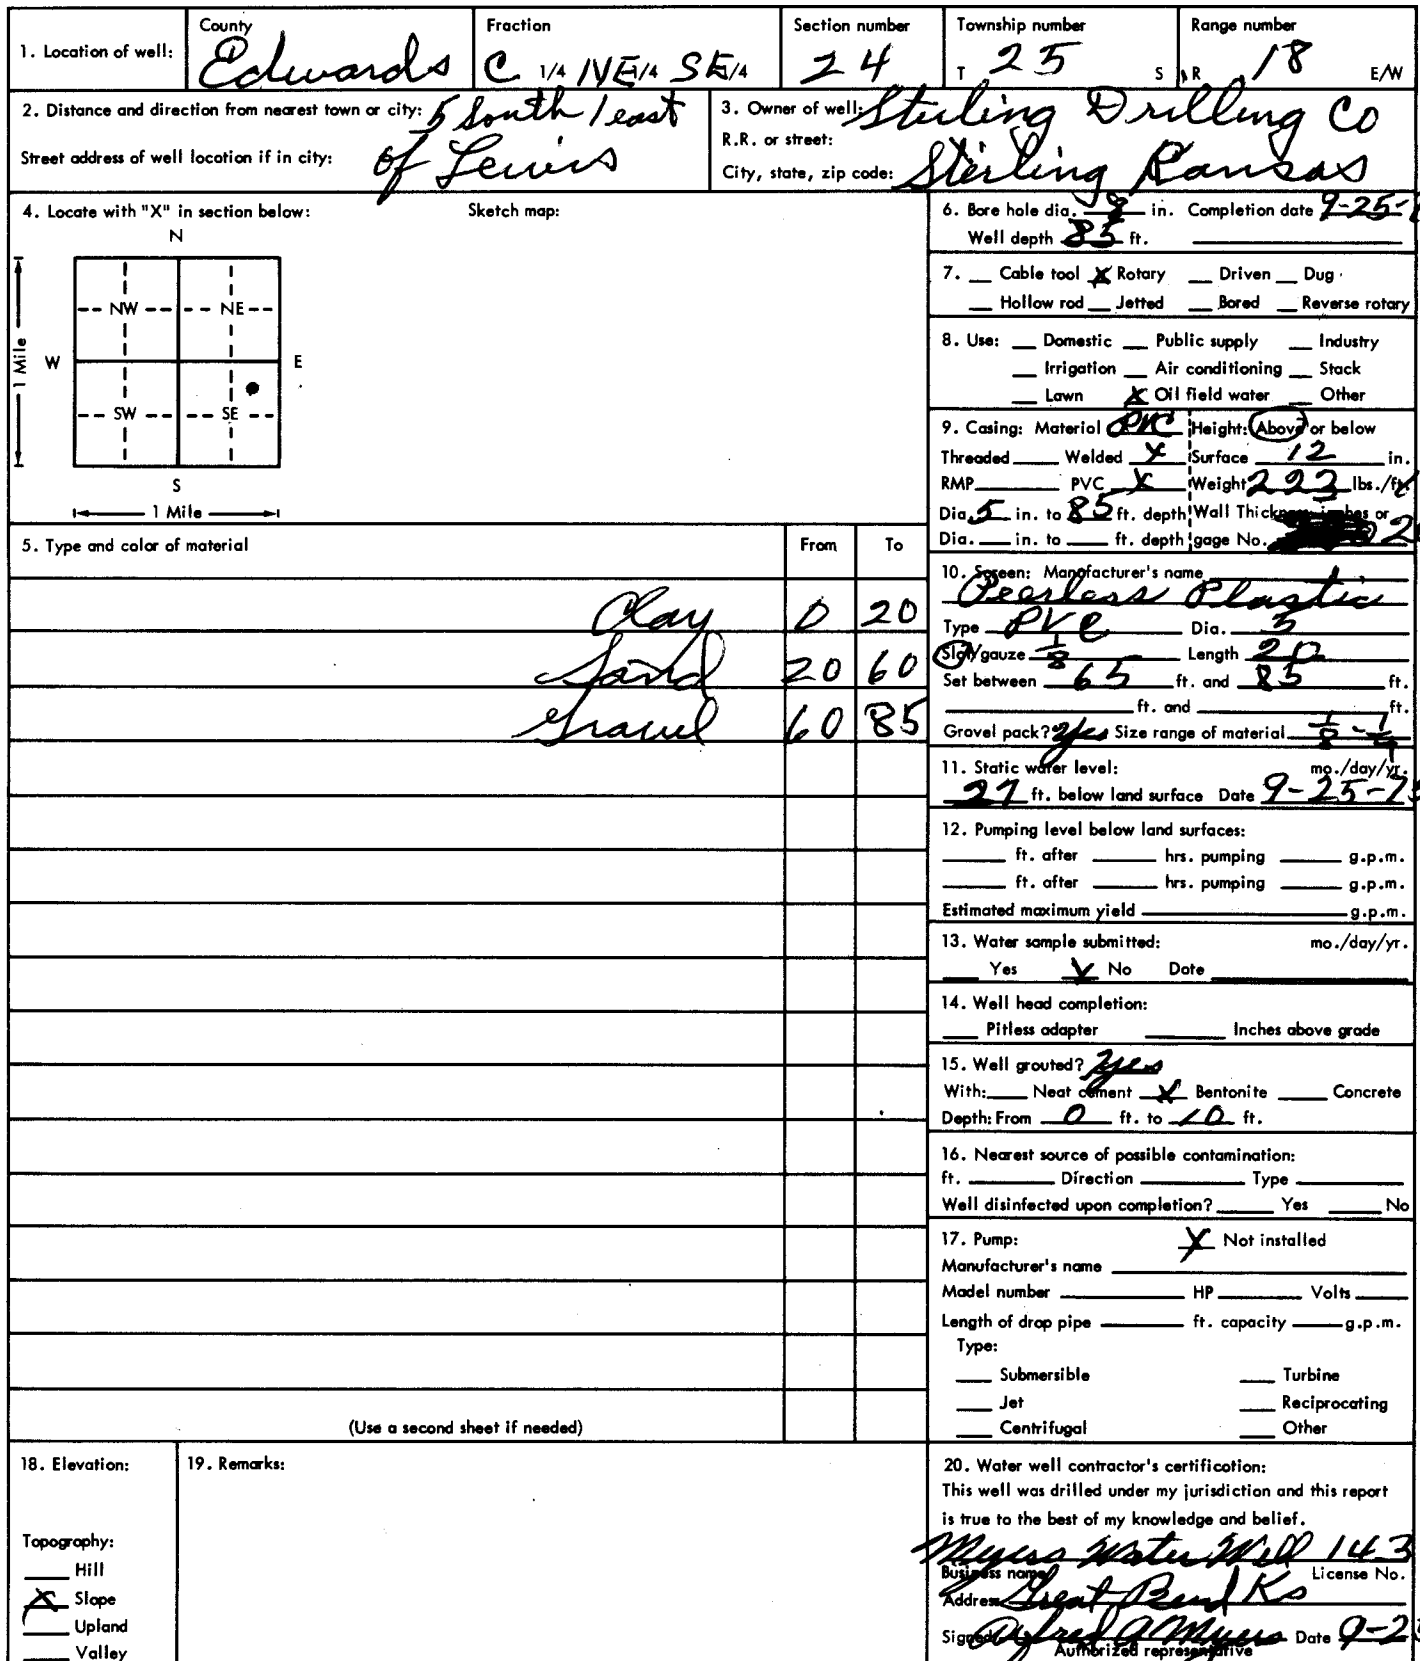 County Fraction Section number Township number Range number
1. Location of well: Edwards C 1/4 NE 1/4 SE 1/4 24 T 25 S R 18 E/W
2. Distance and direction from nearest town or city: 5 South 1 east
Street address of well location if in city: of Lewis
3. Owner of well: Sterling Drilling Co
R.R. or street:
City, state, zip code: Sterling Kansas
4. Locate with "X" in section below: Sketch map:
N
NW NE
W E
SW SE
S
1 Mile
1 Mile
6. Bore hole dia. in. Completion date 9-25-
Well depth 85 ft.
7. Cable tool X Rotary Driven Dug
Hollow rod Jetted Bored Reverse rotary
8. Use: Domestic Public supply Industry
Irrigation Air conditioning Stock
Lawn X Oil field water Other
9. Casing: Material PVC Height: Above or below
Threaded Welded X Surface 12 in.
RMP PVC X Weight 223 lbs./ft.
Dia. 5 in. to 85 ft. depth Wall Thickness: inches or
Dia. in. to ft. depth gage No.
5. Type and color of material From To
Clay 0 20
Sand 20 60
Gravel 60 85
(Use a second sheet if needed)
10. Screen: Manufacturer's name
Peerless Plastic
Type PVC Dia. 5
Slot/gauze 1/8 Length 20
Set between 65 ft. and 85 ft.
ft. and ft.
Gravel pack? Yes Size range of material 1/8 - 1/4
11. Static water level: mo./day/yr.
27 ft. below land surface Date 9-25-7
12. Pumping level below land surfaces:
ft. after hrs. pumping g.p.m.
ft. after hrs. pumping g.p.m.
Estimated maximum yield g.p.m.
13. Water sample submitted: mo./day/yr.
Yes X No Date
14. Well head completion:
Pitless adapter Inches above grade
15. Well grouted? Yes
With: Neat cement X Bentonite Concrete
Depth: From 0 ft. to 10 ft.
16. Nearest source of possible contamination:
ft. Direction Type
Well disinfected upon completion? Yes No
17. Pump: X Not installed
Manufacturer's name
Model number HP Volts
Length of drop pipe ft. capacity g.p.m.
Type:
Submersible Turbine
Jet Reciprocating
Centrifugal Other
18. Elevation:
Topography:
Hill
X Slope
Upland
Valley
19. Remarks:
20. Water well contractor's certification:
This well was drilled under my jurisdiction and this report
is true to the best of my knowledge and belief.
Myers Water Well 143
Business name License No.
Address Great Bend Ks
Signed Alfred A Myers Date 9-2
Authorized representative